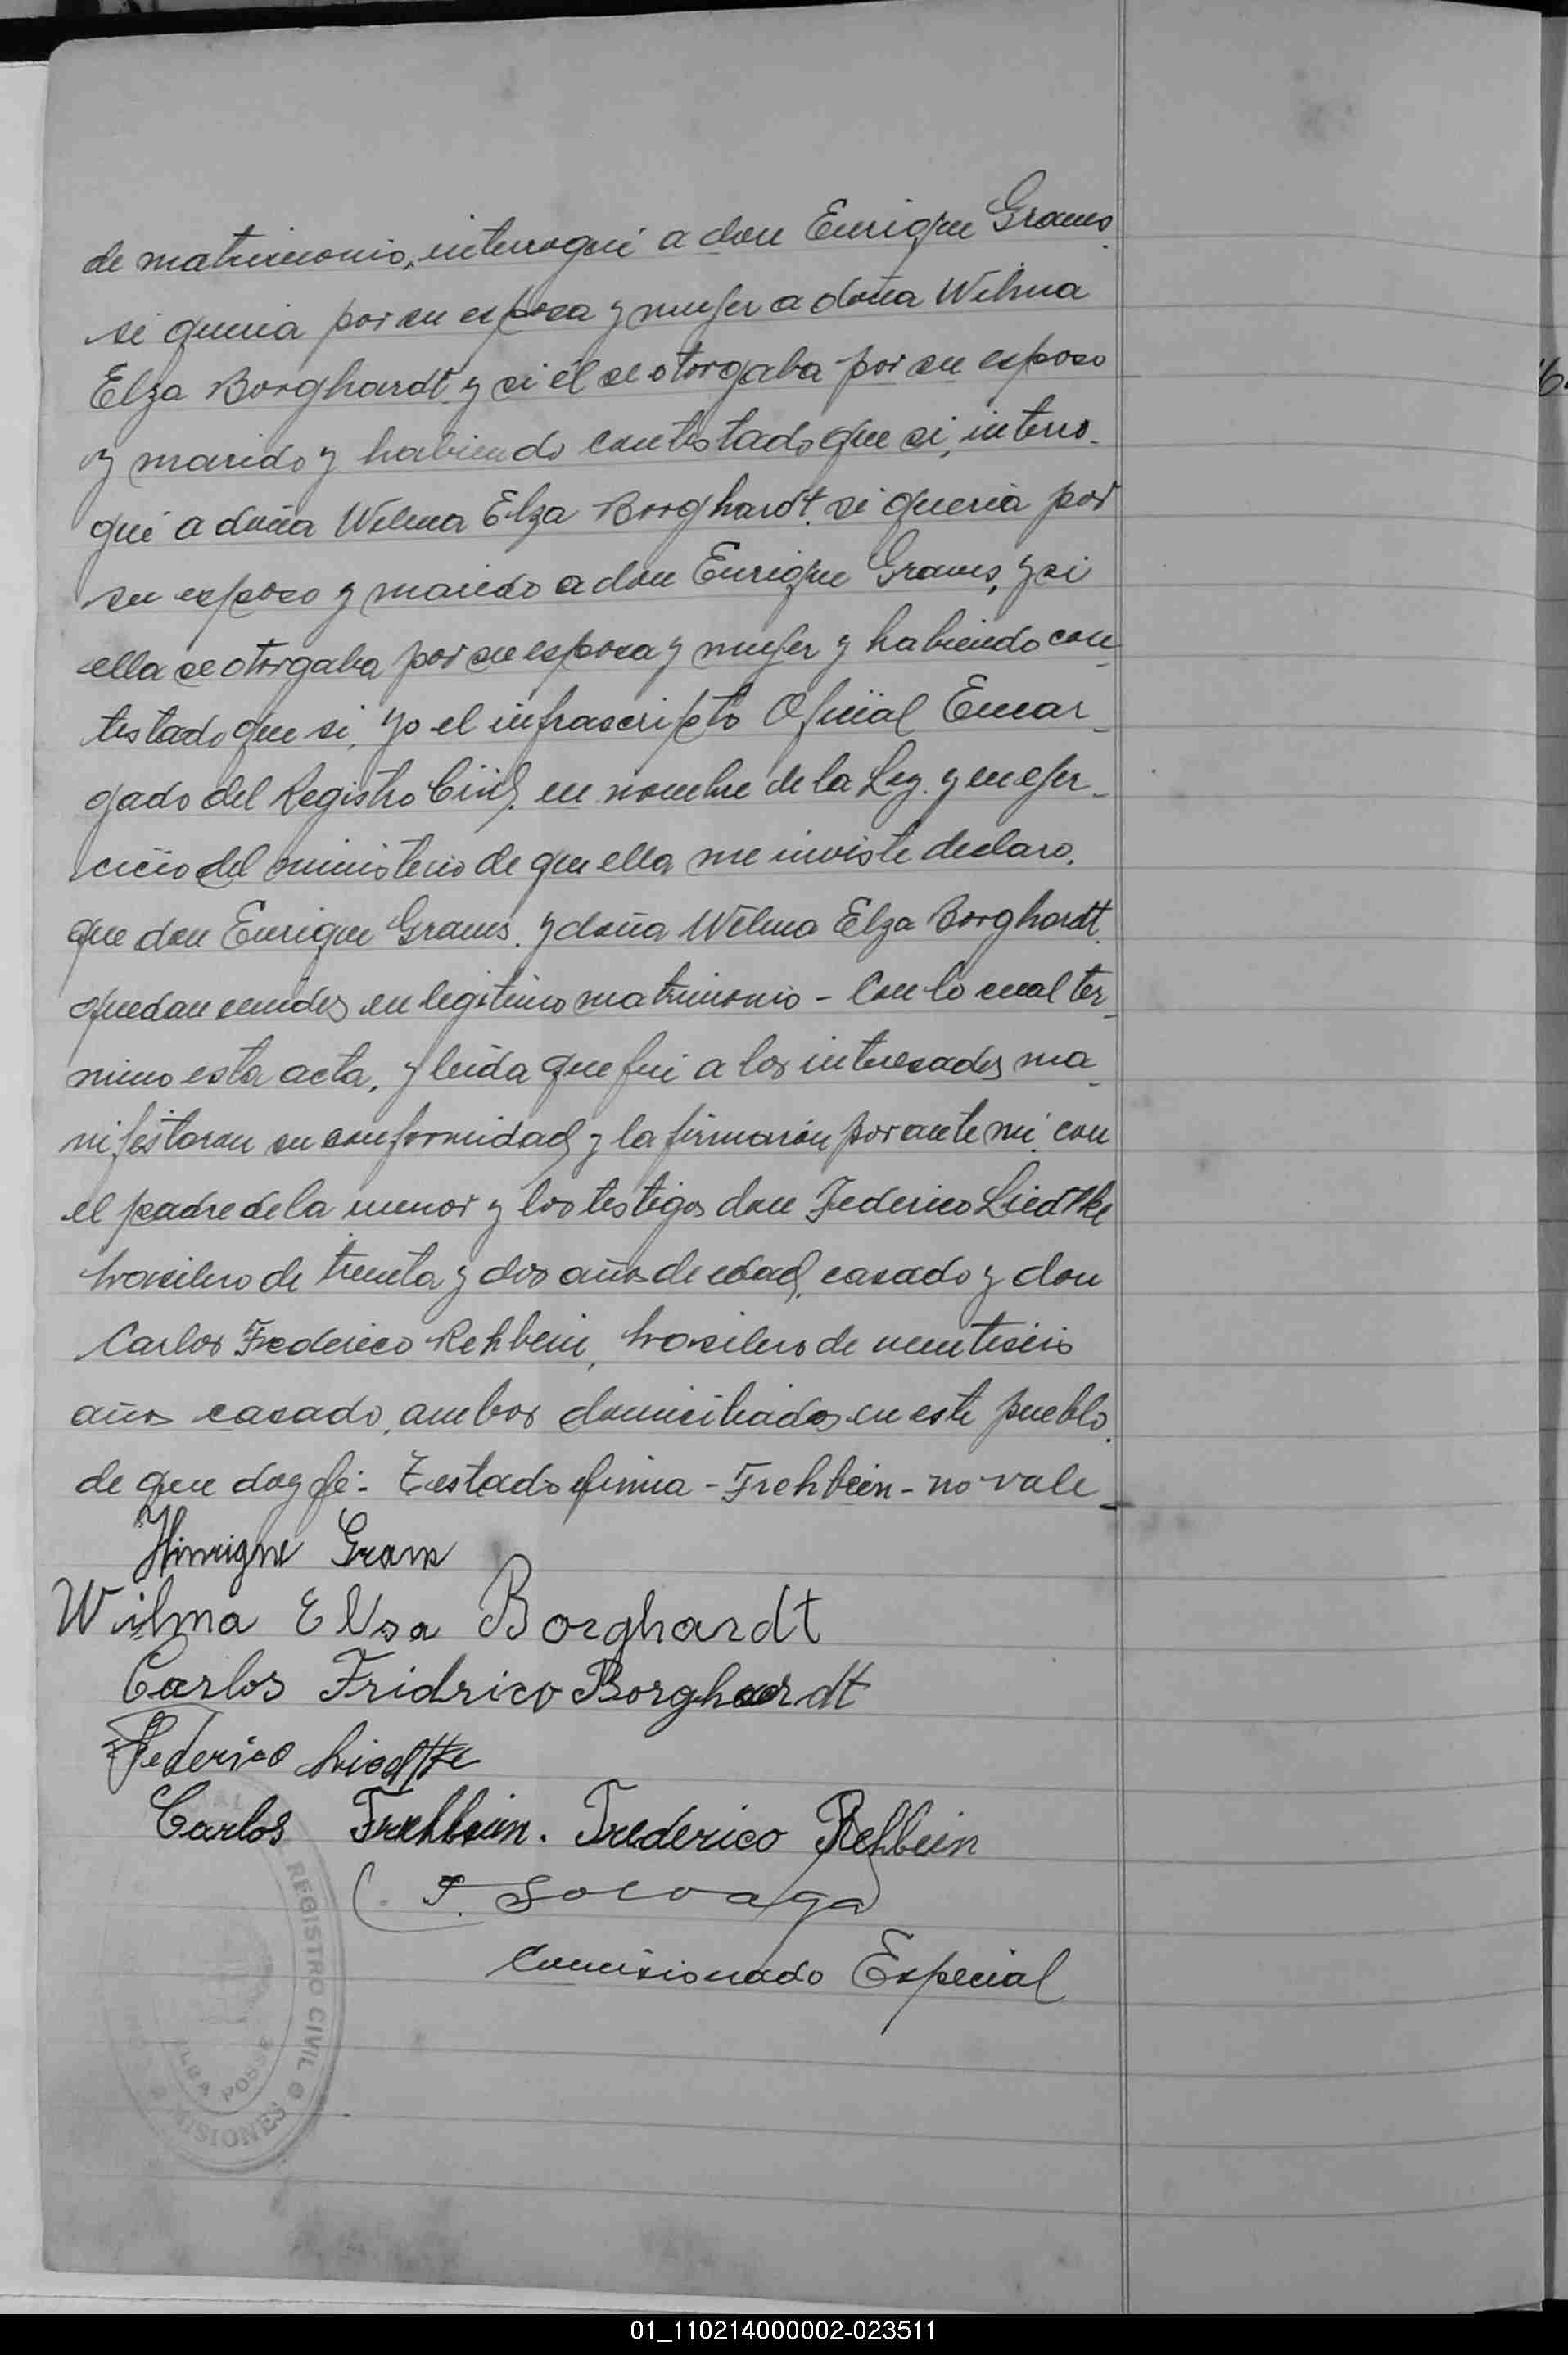 de matrimonio, interrogué a don Enrique Grams
si queria por su esposa y mujer a doña Wilma
Elza Borghardt y si él se otorgaba por su esposo
y marido y habiendo contestado que si, interro-
gué a doña Wilma Elza Borghardt. si queria por
su esposo y marido a don Enrique Grams, y si
ella se otorgaba por su esposa y mujer y habiendo con-
testado que si, yo el infrascripto Oficial Encar-
gado del Registro Civil, en nombre de la Ley. y en ejer-
cicio del ministerio de que ella me inviste declaro.
que don Enrique Grams. y doña Wilma Elza Borghardt.
quedan unidos en legitimo matrimonio - Con lo cual ter-
mino esta acta, y leida que fué a los interesados ma-
nifestaron su conformidad y la firmaron por ante mi con
el padre de la menor y los testigos don Federico Liedtke
brasilero de treinta y dos años de edad, casado y don
Carlos Frederico Rehbein, brasilero de veintiseis
años casado, ambos domiciliados en este pueblo.
de que doy fé:- Testado firma - Frehbein - no vale -
Hinrique Grams
Wilma Elsa Borghardt
Carlos Fridrico Borghardt
Federico Liedtke
Carlos Frehbein. Frederico Rehbein
Comisionado Especial
REGISTRO CIVIL
ALBA POSSE
MISIONES
01_110214000002-023511